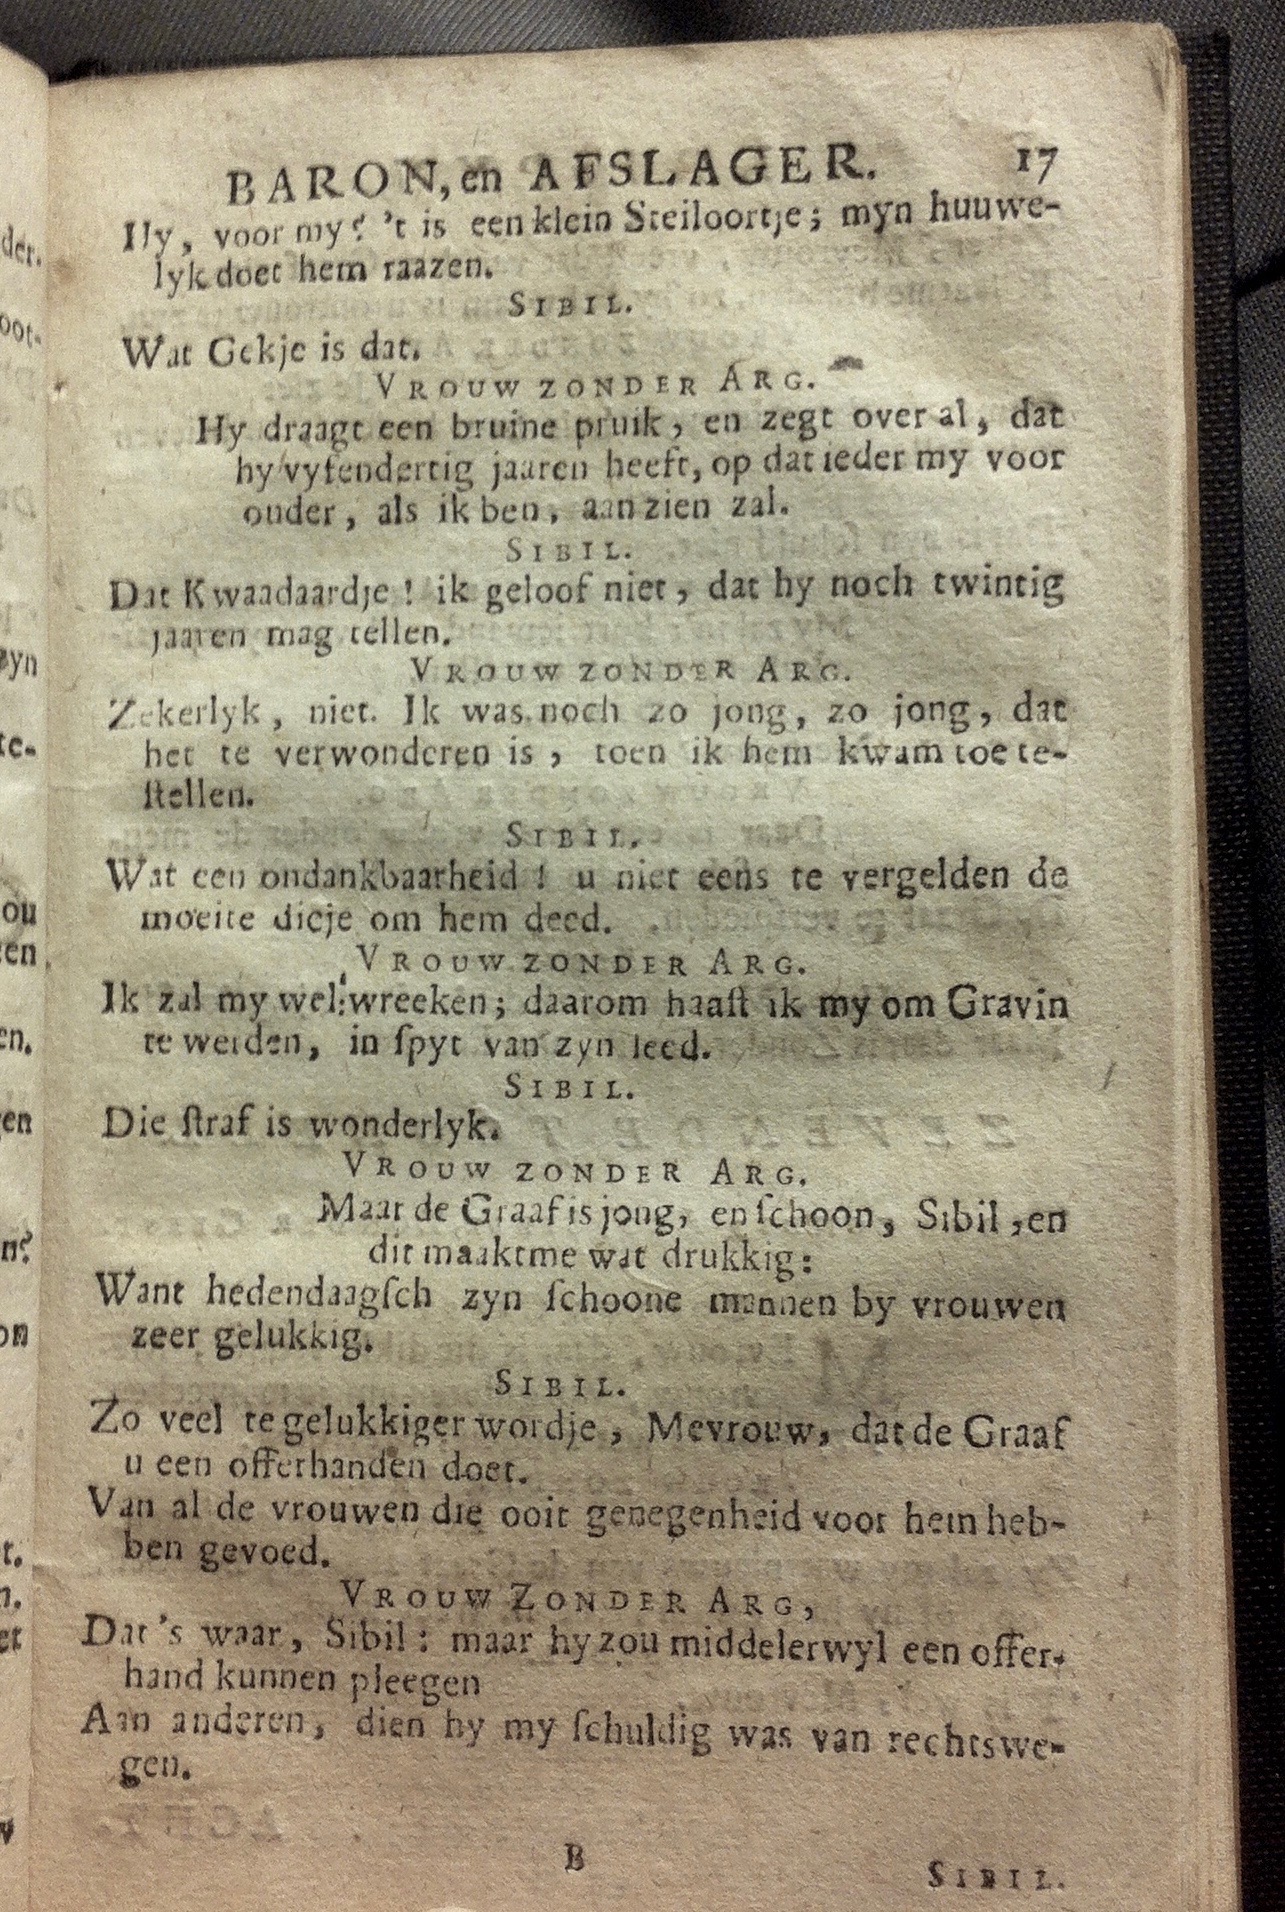 BARON, en AFSLAGER. 17
Hy, voor my? 't is een klein Steiloortje; myn huuwe-
lyk doet hem raazen.
SIBIL.
Wat Gekje is dat.
VROUW ZONDER ARG.
Hy draagt een bruine pruik, en zegt over al, dat
hy vyfendertig jaaren heeft, op dat ieder my voor
ouder, als ik ben, aanzien zal.
SIBIL.
Dat Kwaadaardje! ik geloof niet, dat hy noch twintig
jaaren mag tellen.
VROUW ZONDER ARG.
Zekerlyk, niet. Ik was noch zo jong, zo jong, dat
het te verwonderen is, toen ik hem kwam toe te-
ſtellen.
SIBIL.
Wat een ondankbaarheid! u niet eens te vergelden de
moeite dieje om hem deed.
VROUW ZONDER ARG.
Ik zal my wel wreeken; daarom haaſt ik my om Gravin
te werden, in ſpyt van zyn leed.
SIBIL.
Die ſtraf is wonderlyk.
VROUW ZONDER ARG.
Maar de Graaf is jong, en ſchoon, Sibil, en
dit maaktme wat drukkig:
Want hedendaagſch zyn ſchoone mannen by vrouwen
zeer gelukkig.
SIBIL.
Zo veel te gelukkiger wordje, Mevrouw, dat de Graaf
u een offerhanden doet.
Van al de vrouwen die ooit genegenheid voor hem heb-
ben gevoed.
VROUW ZONDER ARG,
Dat 's waar, Sibil: maar hy zou middelerwyl een offer-
hand kunnen pleegen
Aan anderen, dien hy my ſchuldig was van rechtswe-
gen.
B
SIBIL.